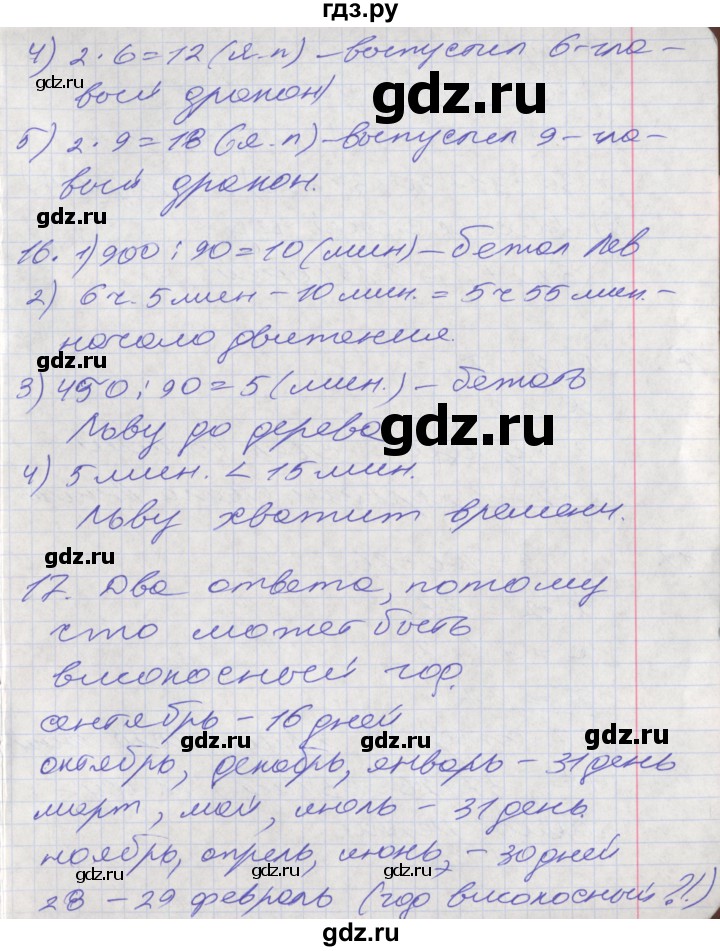 гдз.ру
4) 2 · 6 = 12 (я. п) – выпустил 6-гла-
вый дракон)
gdz.ru
5) 2 · 9 = 18 (я. п) – выпустил 9-гла-
вый дракон.
gdz.ru
16. 1) 900 : 90 = 10 (мин) – бежал Лев
2) 6 ч. 5 мин – 10 мин. = 5 ч 55 мин. –
начало движения.
gdz.ru
3) 450 : 90 = 5 (мин.) – бежать
Льву до дерева
gdz.ru
4) 5 мин. < 15 мин.
Льву хватит времени.
gdz.ru
17. Два ответа, потому
что может быть
високосный год.
сентябрь – 16 дней
gdz.ru gdz.ru
октябрь, декабрь, январь – 31 день
март, май, июль – 31 день.
ноябрь, апрель, июнь, – 30 дней
gdz.ru gdz.ru
28 – 29 февраль (год високосный?!)
gdz.ru